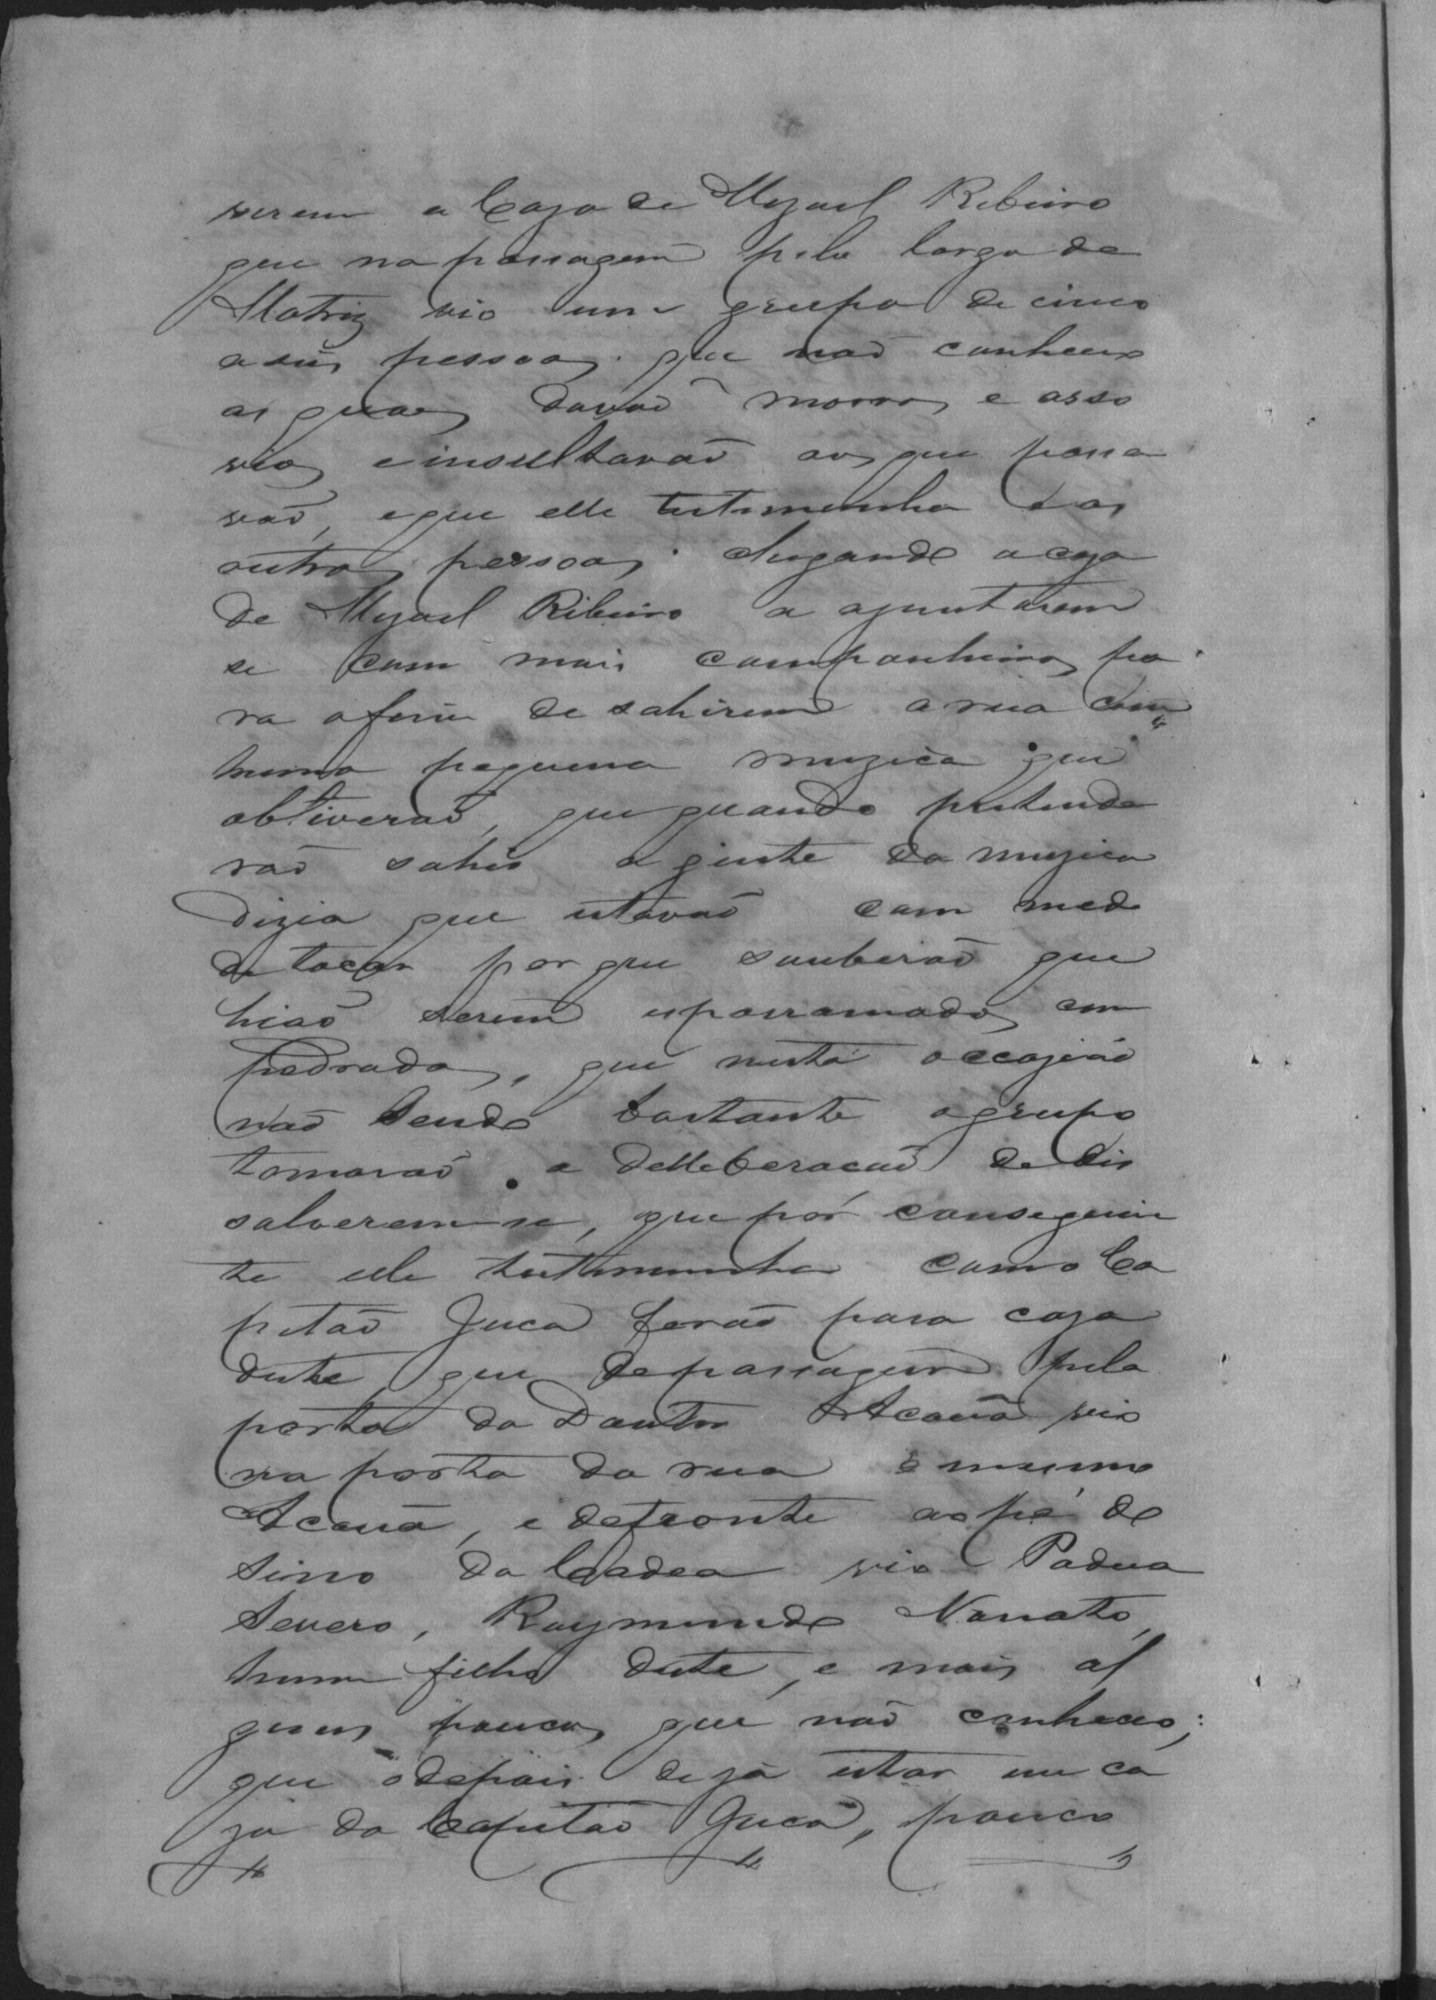 serem a Caza de Mizael Ribeiro
que na passagem pelo largo da
Matriz vio um grupo de cinco
a seis pessoas que naõ conheceu
as quaes davaõ morras e asso
vios e insultavaõ aos que passa
vaõ, e que elle testemunha e as
outras pessoas chegando a caza
de Mizael Ribeiro a ajuntarem
se com mais companheiros pa
ra afim de sahirem a rua com
huma pequena muzica que
obtiveraõ, que quando pretende
raõ sahir a gente da muzica
dizia que estavaõ com medo
de tocar por que souberaõ que
hiaõ serem esparramados com
pedradas, que nesta occaziaõ
naõ sendo bastante o grupo
tomaraõ a delleberacaõ de dis
solverem se, que por conseguin
te elle testemunha com o Ca
pitaõ Juca foraõ para caza
deste, que de passagem pela
porta do Doutor Acauã vio
na porta da rua o mesmo
Acauã, e defronte ao pé do
sino da Cadea vio Padua
Severo, Raymundo Nonato,
hum filho deste, e mais al
guns poucos que naõ conheceo;
que depois de já estar em ca
za do Capitaõ Juca, pouco